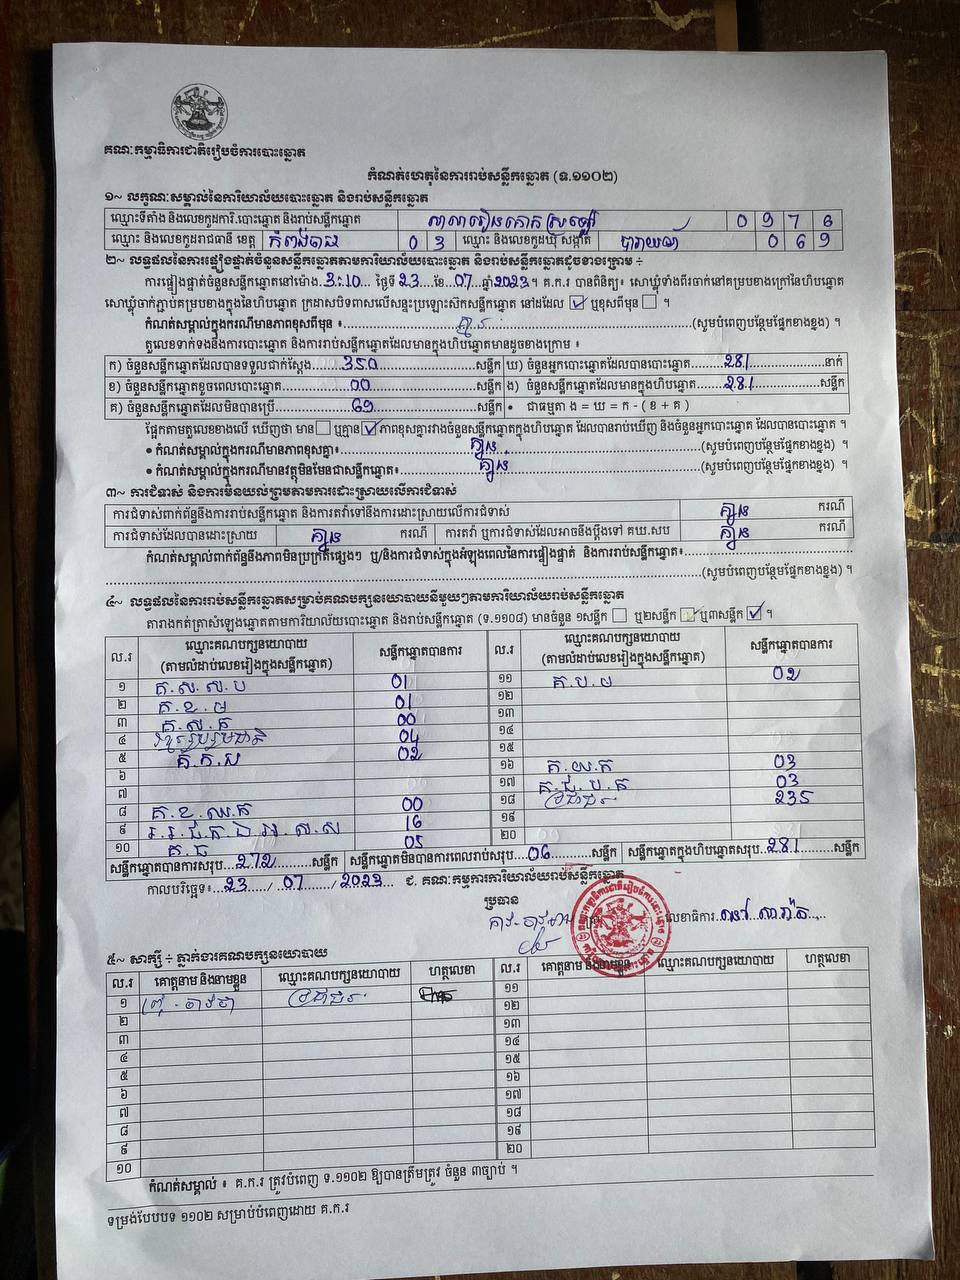 គណៈកម្មាធិការជាតិរៀបចំការបោះឆ្នោត
កំណត់ហេតុនៃការរាប់សន្លឹកឆ្នោត (ទ.១១០២)
១~ លក្ខណៈសម្គាល់នៃការិយាល័យបោះឆ្នោត និងរាប់សន្លឹកឆ្នោត
ឈ្មោះទីតាំង និងលេខកូដការិ.បោះឆ្នោត និងរាប់សន្លឹកឆ្នោត 0 9 7 6
ឈ្មោះ និងលេខកូដរាជធានី ខេត្ត កំពង់ចាម 0 3 ឈ្មោះ និងលេខកូដឃុំ សង្កាត់ បារាយណ៍ 0 6 9
២~ លទ្ធផលនៃការផ្ទៀងផ្ទាត់ចំនួនសន្លឹកឆ្នោតតាមការិយាល័យបោះឆ្នោត និងរាប់សន្លឹកឆ្នោតដូចខាងក្រោម ÷
ការផ្ទៀងផ្ទាត់ចំនួនសន្លឹកឆ្នោតនៅម៉ោង 3:10 ថ្ងៃទី 23 ខែ 07 ឆ្នាំ 2023។ គ.ក.រ បានពិនិត្យ៖ សោឃ្លុំទាំងពីរចាក់នៅគម្របខាងក្រៅនៃហិបឆ្នោត
សោឃ្លុំចាក់ភ្ជាប់គម្របខាងក្នុងនៃហិបឆ្នោត ក្រដាសបិទពាសលើសន្ទះប្រឡោះស៊កសន្លឹកឆ្នោត នៅដដែល ☑ ឬខុសពីមុន ☐ ។
កំណត់សម្គាល់ក្នុងករណីមានភាពខុសពីមុន ៖ គ្មាន (សូមបំពេញបន្ថែមផ្នែកខាងខ្នង) ។
តួលេខទាក់ទងនឹងការបោះឆ្នោត និងការរាប់សន្លឹកឆ្នោតដែលមានក្នុងហិបឆ្នោតមានដូចខាងក្រោម ៖
ក) ចំនួនសន្លឹកឆ្នោតដែលបានទទួលជាក់ស្តែង 350 សន្លឹក ឃ) ចំនួនអ្នកបោះឆ្នោតដែលបានបោះឆ្នោត 281 នាក់
ខ) ចំនួនសន្លឹកឆ្នោតខូចពេលបោះឆ្នោត 00 សន្លឹក ង) ចំនួនសន្លឹកឆ្នោតដែលមានក្នុងហិបឆ្នោត 281 សន្លឹក
គ) ចំនួនសន្លឹកឆ្នោតដែលមិនបានប្រើ 69 សន្លឹក • ជាធម្មតា ង = ឃ = ក - ( ខ + គ )
ផ្អែកតាមតួលេខខាងលើ ឃើញថា មាន ☐ ឬគ្មាន ☑ ភាពខុសគ្នារវាងចំនួនសន្លឹកឆ្នោតក្នុងហិបឆ្នោត ដែលបានរាប់ឃើញ និងចំនួនអ្នកបោះឆ្នោត ដែលបានបោះឆ្នោត ។
• កំណត់សម្គាល់ក្នុងករណីមានភាពខុសគ្នា៖ គ្មាន (សូមបំពេញបន្ថែមផ្នែកខាងខ្នង) ។
• កំណត់សម្គាល់ក្នុងករណីមានវត្ថុមិនមែនជាសន្លឹកឆ្នោត៖ គ្មាន (សូមបំពេញបន្ថែមផ្នែកខាងខ្នង) ។
៣~ ការជំទាស់ និងការមិនយល់ព្រមតាមការដោះស្រាយលើការជំទាស់
ការជំទាស់ពាក់ព័ន្ធនឹងការរាប់សន្លឹកឆ្នោត និងការតវ៉ាទៅនឹងការដោះស្រាយលើការជំទាស់ គ្មាន ករណី
ការជំទាស់ដែលបានដោះស្រាយ គ្មាន ករណី ការតវ៉ា ឬការជំទាស់ដែលអាចនឹងប្តឹងទៅ គឃ.សប គ្មាន ករណី
កំណត់សម្គាល់ពាក់ព័ន្ធនឹងភាពមិនប្រក្រតីផ្សេងៗ ឬ/និងការជំទាស់ក្នុងអំឡុងពេលនៃការផ្ទៀងផ្ទាត់ និងការរាប់សន្លឹកឆ្នោត៖
(សូមបំពេញបន្ថែមផ្នែកខាងខ្នង) ។
៤~ លទ្ធផលនៃការរាប់សន្លឹកឆ្នោតសម្រាប់គណបក្សនយោបាយនីមួយៗតាមការិយាល័យរាប់សន្លឹកឆ្នោត
តារាងកត់ត្រាសំឡេងឆ្នោតតាមការិយាល័យបោះឆ្នោត និងរាប់សន្លឹកឆ្នោត (ទ.១១០៨) មានចំនួន ១សន្លឹក ☐ ឬ២សន្លឹក ☐ ឬ៣សន្លឹក ☑ ។
ល.រ ឈ្មោះគណបក្សនយោបាយ (តាមលំដាប់លេខរៀងក្នុងសន្លឹកឆ្នោត) សន្លឹកឆ្នោតបានការ ល.រ ឈ្មោះគណបក្សនយោបាយ (តាមលំដាប់លេខរៀងក្នុងសន្លឹកឆ្នោត) សន្លឹកឆ្នោតបានការ
១ គ.ស.ស.ប 01 ១១ គ.ប.ប 02
២ គ.ខ.ម 01 ១២
៣ គ.ស.ន 00 ១៣
៤ 04 ១៤
៥ គ.ក.ស 02 ១៥
៦ ១៦ គ.យ.ក 03
៧ ១៧ គ.ជ.ប.ក 03
៨ គ.ខ.ឈ.ក 00 ១៨ ប្រជាជន 235
៩ 16 ១៩
១០ គ.ធ 05 ២០
សន្លឹកឆ្នោតបានការសរុប 272 សន្លឹក សន្លឹកឆ្នោតមិនបានការពេលរាប់សរុប 06 សន្លឹក សន្លឹកឆ្នោតក្នុងហិបឆ្នោតសរុប 281 សន្លឹក
កាលបរិច្ឆេទ៖ 23 / 07 / 2023 ជ. គណៈកម្មការការិយាល័យរាប់សន្លឹកឆ្នោត
ប្រធាន
លេខាធិការ
៥~ សាក្សី ÷ ភ្នាក់ងារគណបក្សនយោបាយ
ល.រ គោត្តនាម និងនាមខ្លួន ឈ្មោះគណបក្សនយោបាយ ហត្ថលេខា ល.រ គោត្តនាម និងនាមខ្លួន ឈ្មោះគណបក្សនយោបាយ ហត្ថលេខា
១ ប្រជាជន ១១
២ ១២
៣ ១៣
៤ ១៤
៥ ១៥
៦ ១៦
៧ ១៧
៨ ១៨
៩ ១៩
១០ ២០
កំណត់សម្គាល់ ៖ គ.ក.រ ត្រូវបំពេញ ទ.១១០២ ឱ្យបានត្រឹមត្រូវ ចំនួន ៣ច្បាប់ ។
ទម្រង់បែបបទ ១១០២ សម្រាប់បំពេញដោយ គ.ក.រ